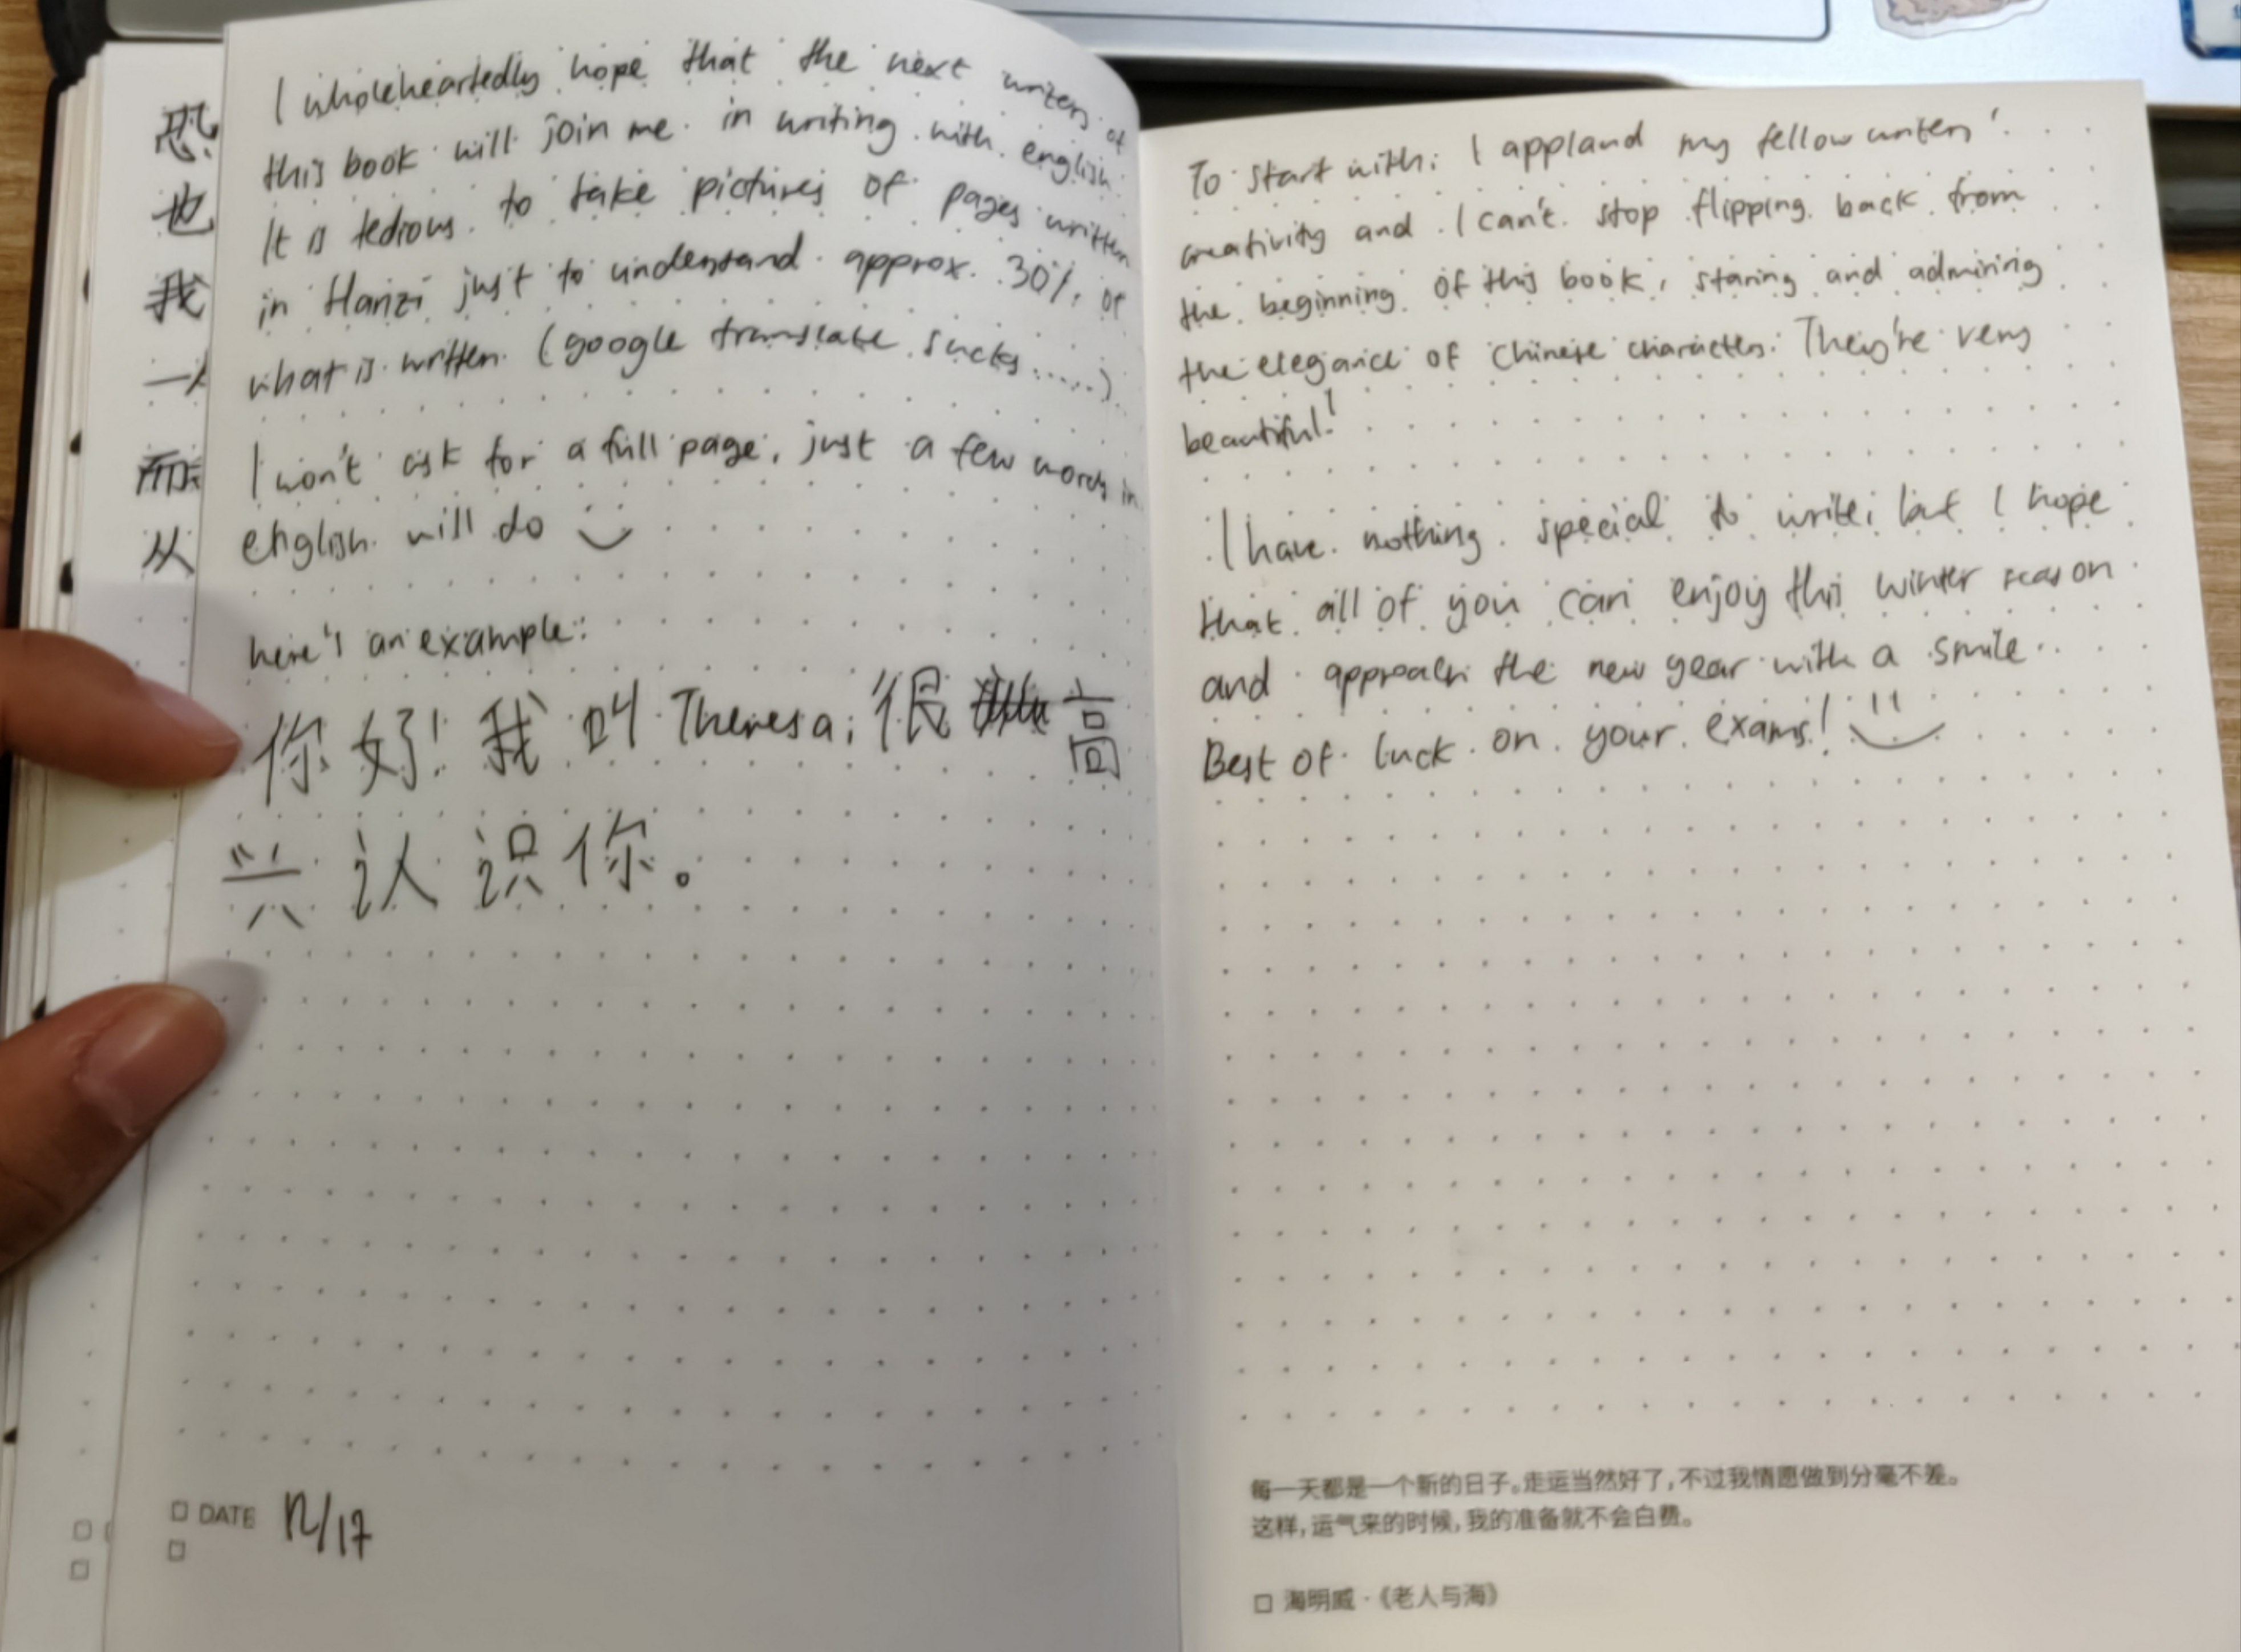 恐
也
我
一
而
从
I wholeheartedly hope that the next writers of
this book will join me in writing with english.
It is tedious to take pictures of pages written
in Hanzi just to understand approx. 30% of
what is written. (google translate sucks.....)
I won't ask for a full page, just a few words in
english will do
here's an example:
你好! 我叫 Theresa, 很 高
兴认识你。
DATE 12/17
To start with, I appland my fellow writers'
creativity and I can't stop flipping back from
the beginning of this book, staring and admiring
the elegance of Chinese characters. They're very
beautiful!
I have nothing special to write, but I hope
that all of you can enjoy this winter season
and approach the new year with a smile.
Best of luck on your exams!
每一天都是一个新的日子。走运当然好了，不过我情愿做到分毫不差。
这样，运气来的时候，我的准备就不会白费。
海明威·《老人与海》